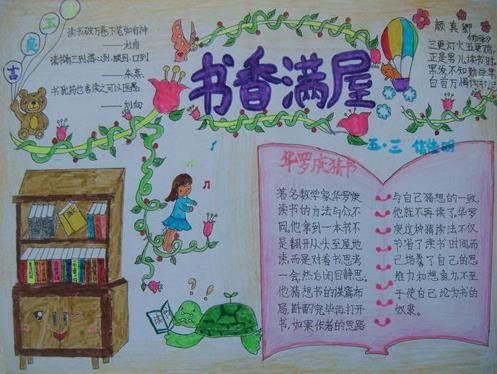 良
言
读书破万卷下笔如有神
——杜甫
读书有三到:谓心到,眼到,口到
——朱熹
书犹药也善读之可以医愚
——刘向
书香满屋
颜真卿
三更灯火五更
正是男儿读书时
黑发不知勤学
白首方悔读书迟
五·三
华罗庚猜书
著名数学家华罗庚
读书的方法与众不
同,他拿到一本书不
是翻开从头至尾地
读,而是对着书思考
一会,然后闭目静思,
他猜想书的谋篇布
局,斟酌完毕再打开
书,如果作者的思路
与自己猜想的一致,
他就不再读了,华罗
庚这种猜读法不仅
节省了读书时间而
已培养了自己的思
维力和想象力不至
于使自己沦为书的
奴隶。